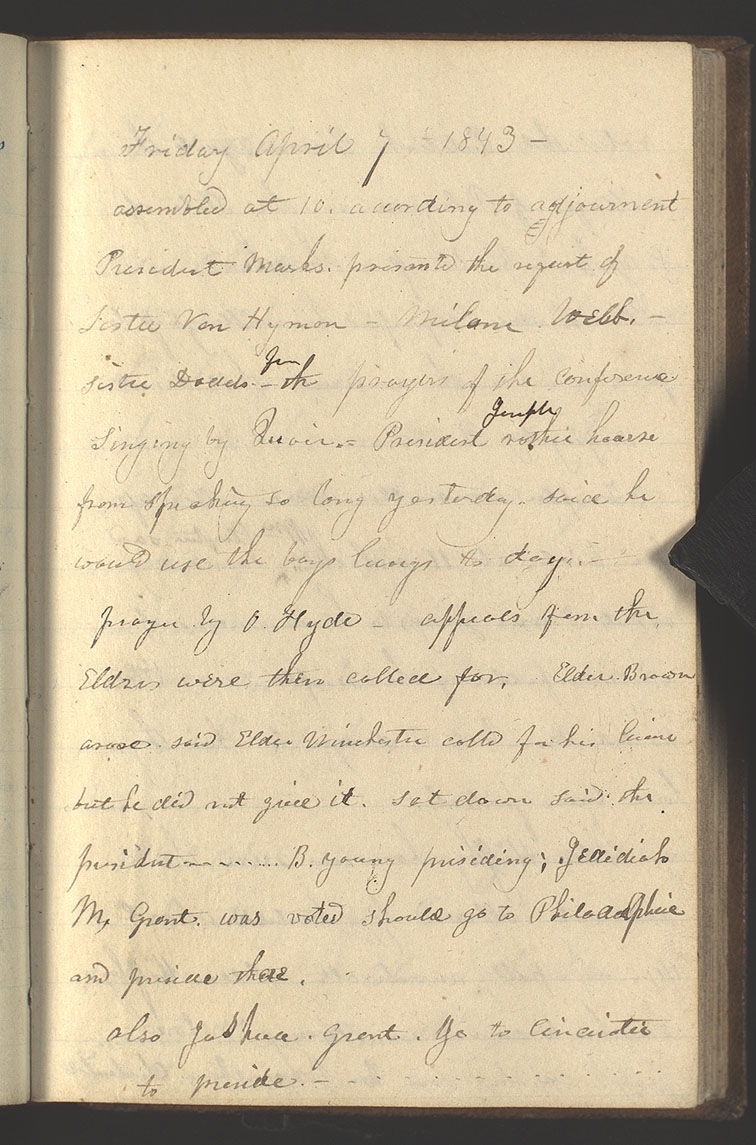 Friday April 7 - 1843 -
assembled at 10. according to adjournment
President Marks. presented the request of
Sister Van Hymon - Milam Webb. -
Sister Dodds. - for the prayers of the Conference
Singing by Quoir. = President Joseph rather hoarse
from speaking so long yesterday. said he
would use the boys lungs to day. -
prayer by O. Hyde - appeals from the
Elders were then called for. Elder Brown
arose. said Elder Winchester calld for his licence
but he did not give it. set down said the
president - . . . . . . B. Young presiding; Jedidiah
M. Grant. was voted should go to Philadelphia
and preside there.
also Joshua. Grant. go to Cincinatti
to preside. -